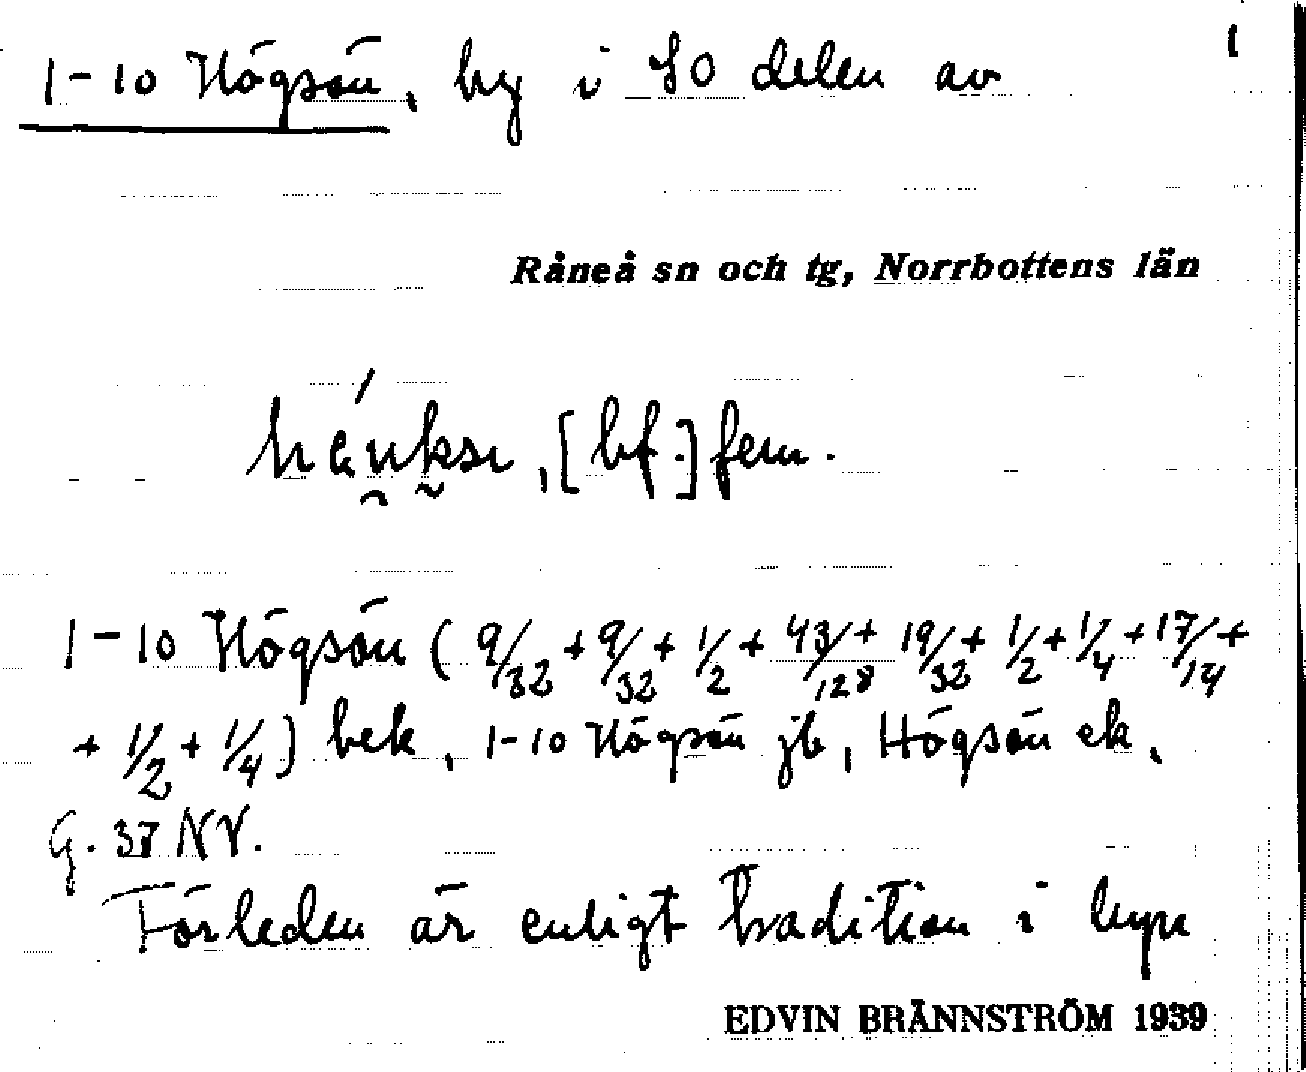 1
1-10 Högsön, by i SO delen av
Råneå sn och tg, Norrbottens län
[bf.] fem.
1-10 Högsön (9/32 + 9/32 + 1/2 + 43/128 + 19/32 + 1/2 + 1/4 + 17/14 +
+ 1/2 + 1/4) bek, 1-10 Högsön jb, Högsön ek,
G. 37 NV.
Förleden är enligt tradition i byn
EDVIN BRÄNNSTRÖM 1939